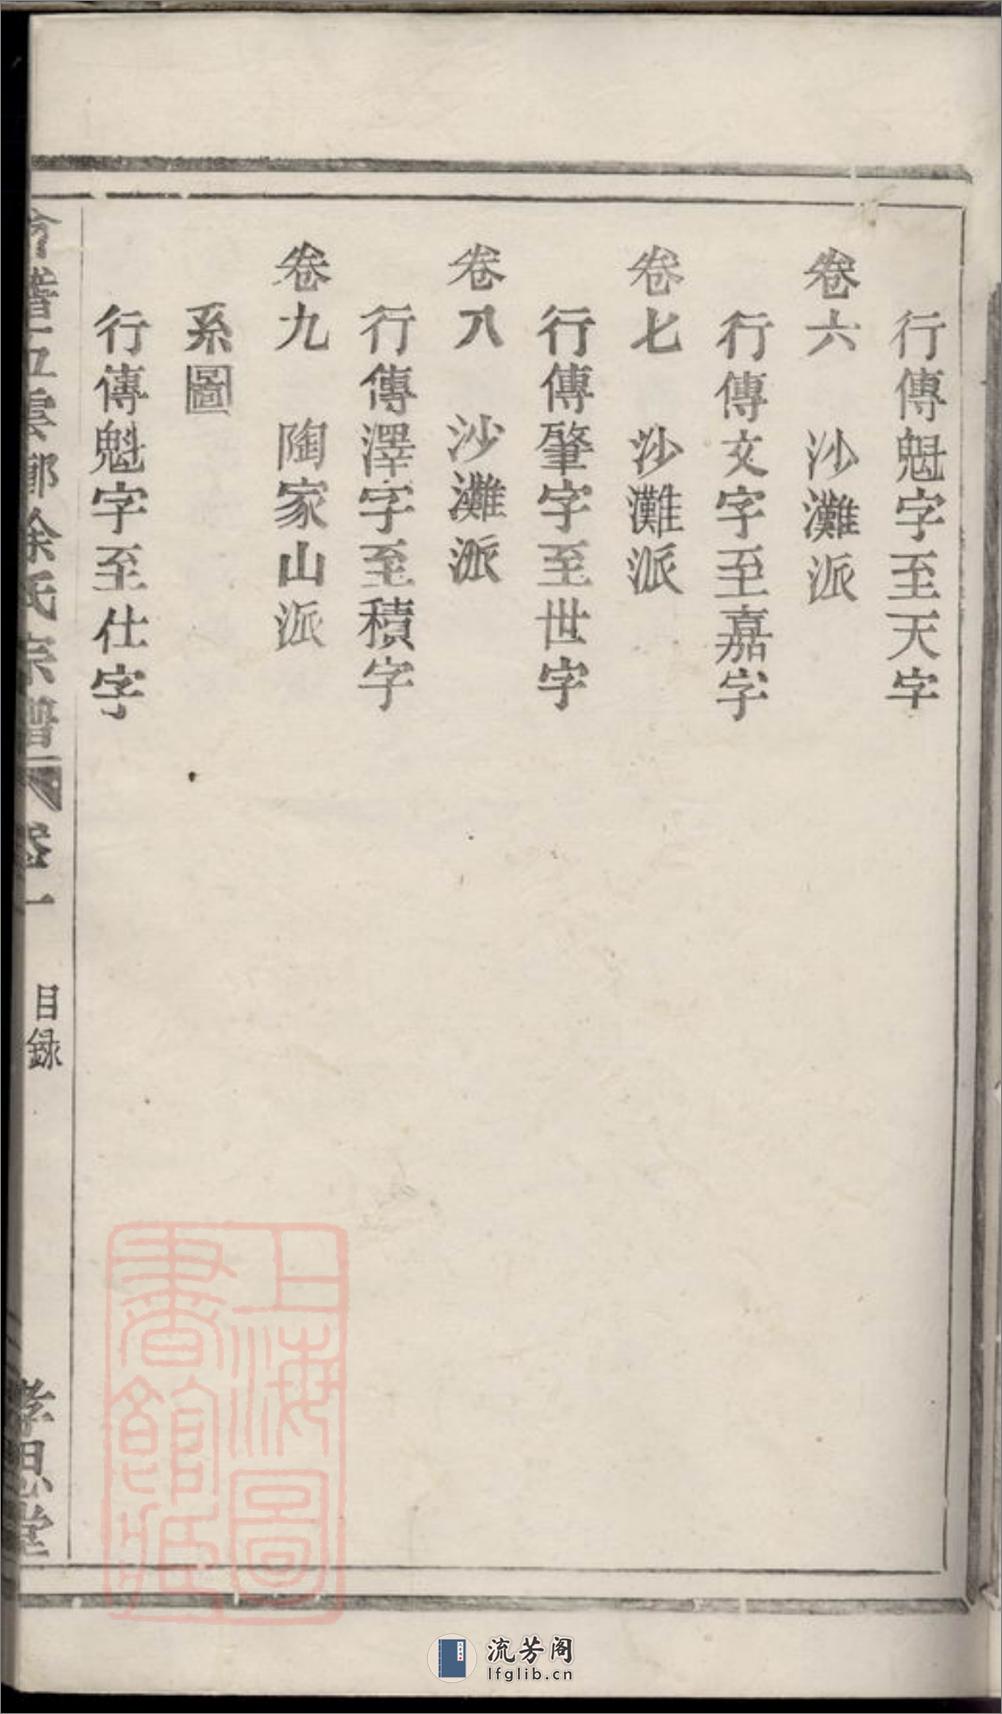 行傳魁字至天字
卷六　沙灘派
行傳文字至嘉字
卷七　沙灘派
行傳肇字至世字
卷八　沙灘派
行傳澤字至積字
卷九　陶家山派
系圖
行傳魁字至仕字
譜五雲鄉徐氏宗譜　卷一　目録　孝思堂
上海圖書館藏
流芳阁
lfglib.cn